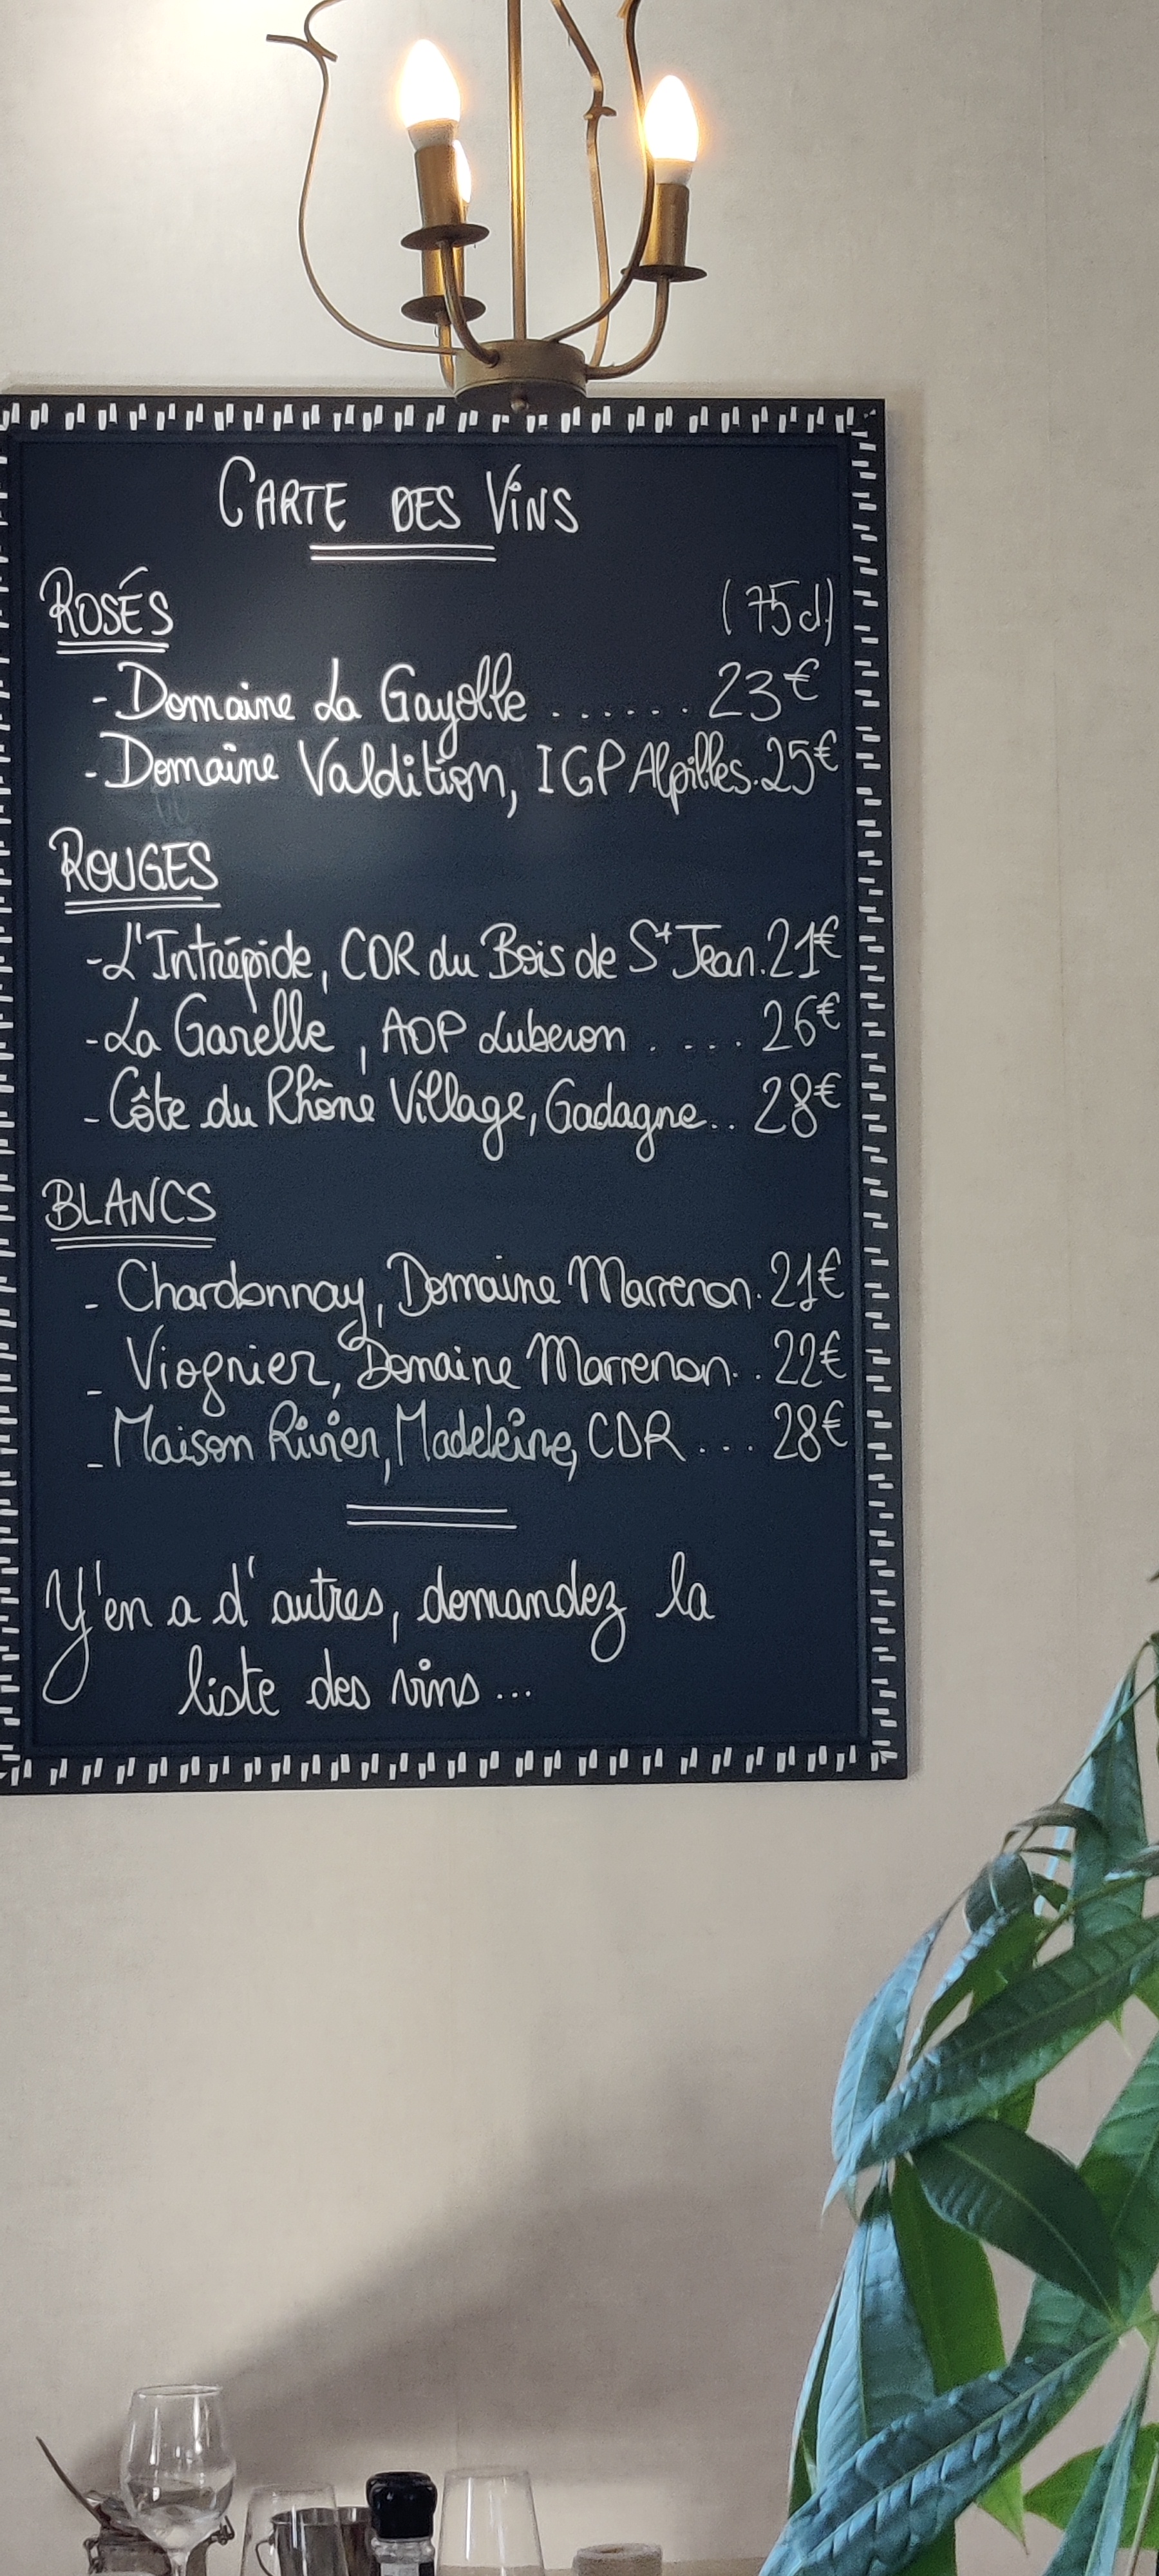 CARTE DES VINS
ROSÉS (75cl)
- Domaine La Gayolle ...... 23€
- Domaine Valdition, IGP Alpilles. 25€
ROUGES
- L'Intrépide, CDR du Bois de St Jean. 21€
- La Garelle, AOP Luberon .... 26€
- Côte du Rhône Village, Gadagne.. 28€
BLANCS
- Chardonnay, Domaine Marrenon. 21€
- Viognier, Domaine Marrenon.. 22€
- Maison Rivier, Madeleine, CDR ... 28€
Y'en a d'autres, demandez la
liste des vins...